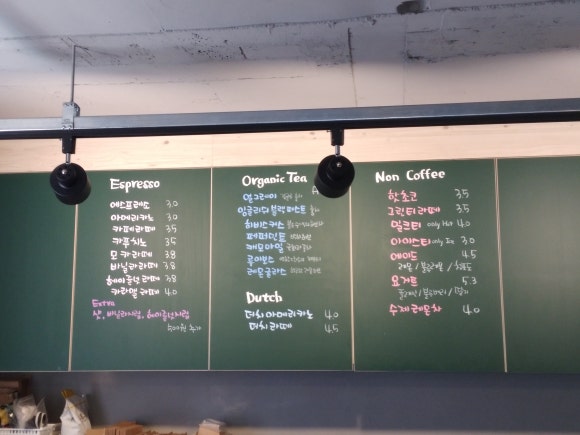 Espresso
에스프레소 3.0
아메리카노 3.0
카페라떼 3.5
카푸치노 3.5
모카라떼 3.8
바닐라라떼 3.8
헤이즐넛라떼 3.8
카라멜라떼 4.0
Extra
샷, 바닐라시럽, 헤이즐넛시럽
500원 추가
Organic Tea
얼그레이
잉글리쉬 블랙퍼스트 홍차
히비스커스
페퍼민트
캐모마일
루이보스
레몬그라스
Dutch
더치아메리카노 4.0
더치라떼 4.5
Non Coffee
핫초코 3.5
그린티라떼 3.5
밀크티 only Hot 4.0
아이스티 only Ice 3.0
에이드 4.5
레몬 / 블루레몬 / 청포도
요거트 5.3
플레인 / 블루베리 / 딸기
수제레몬차 4.0